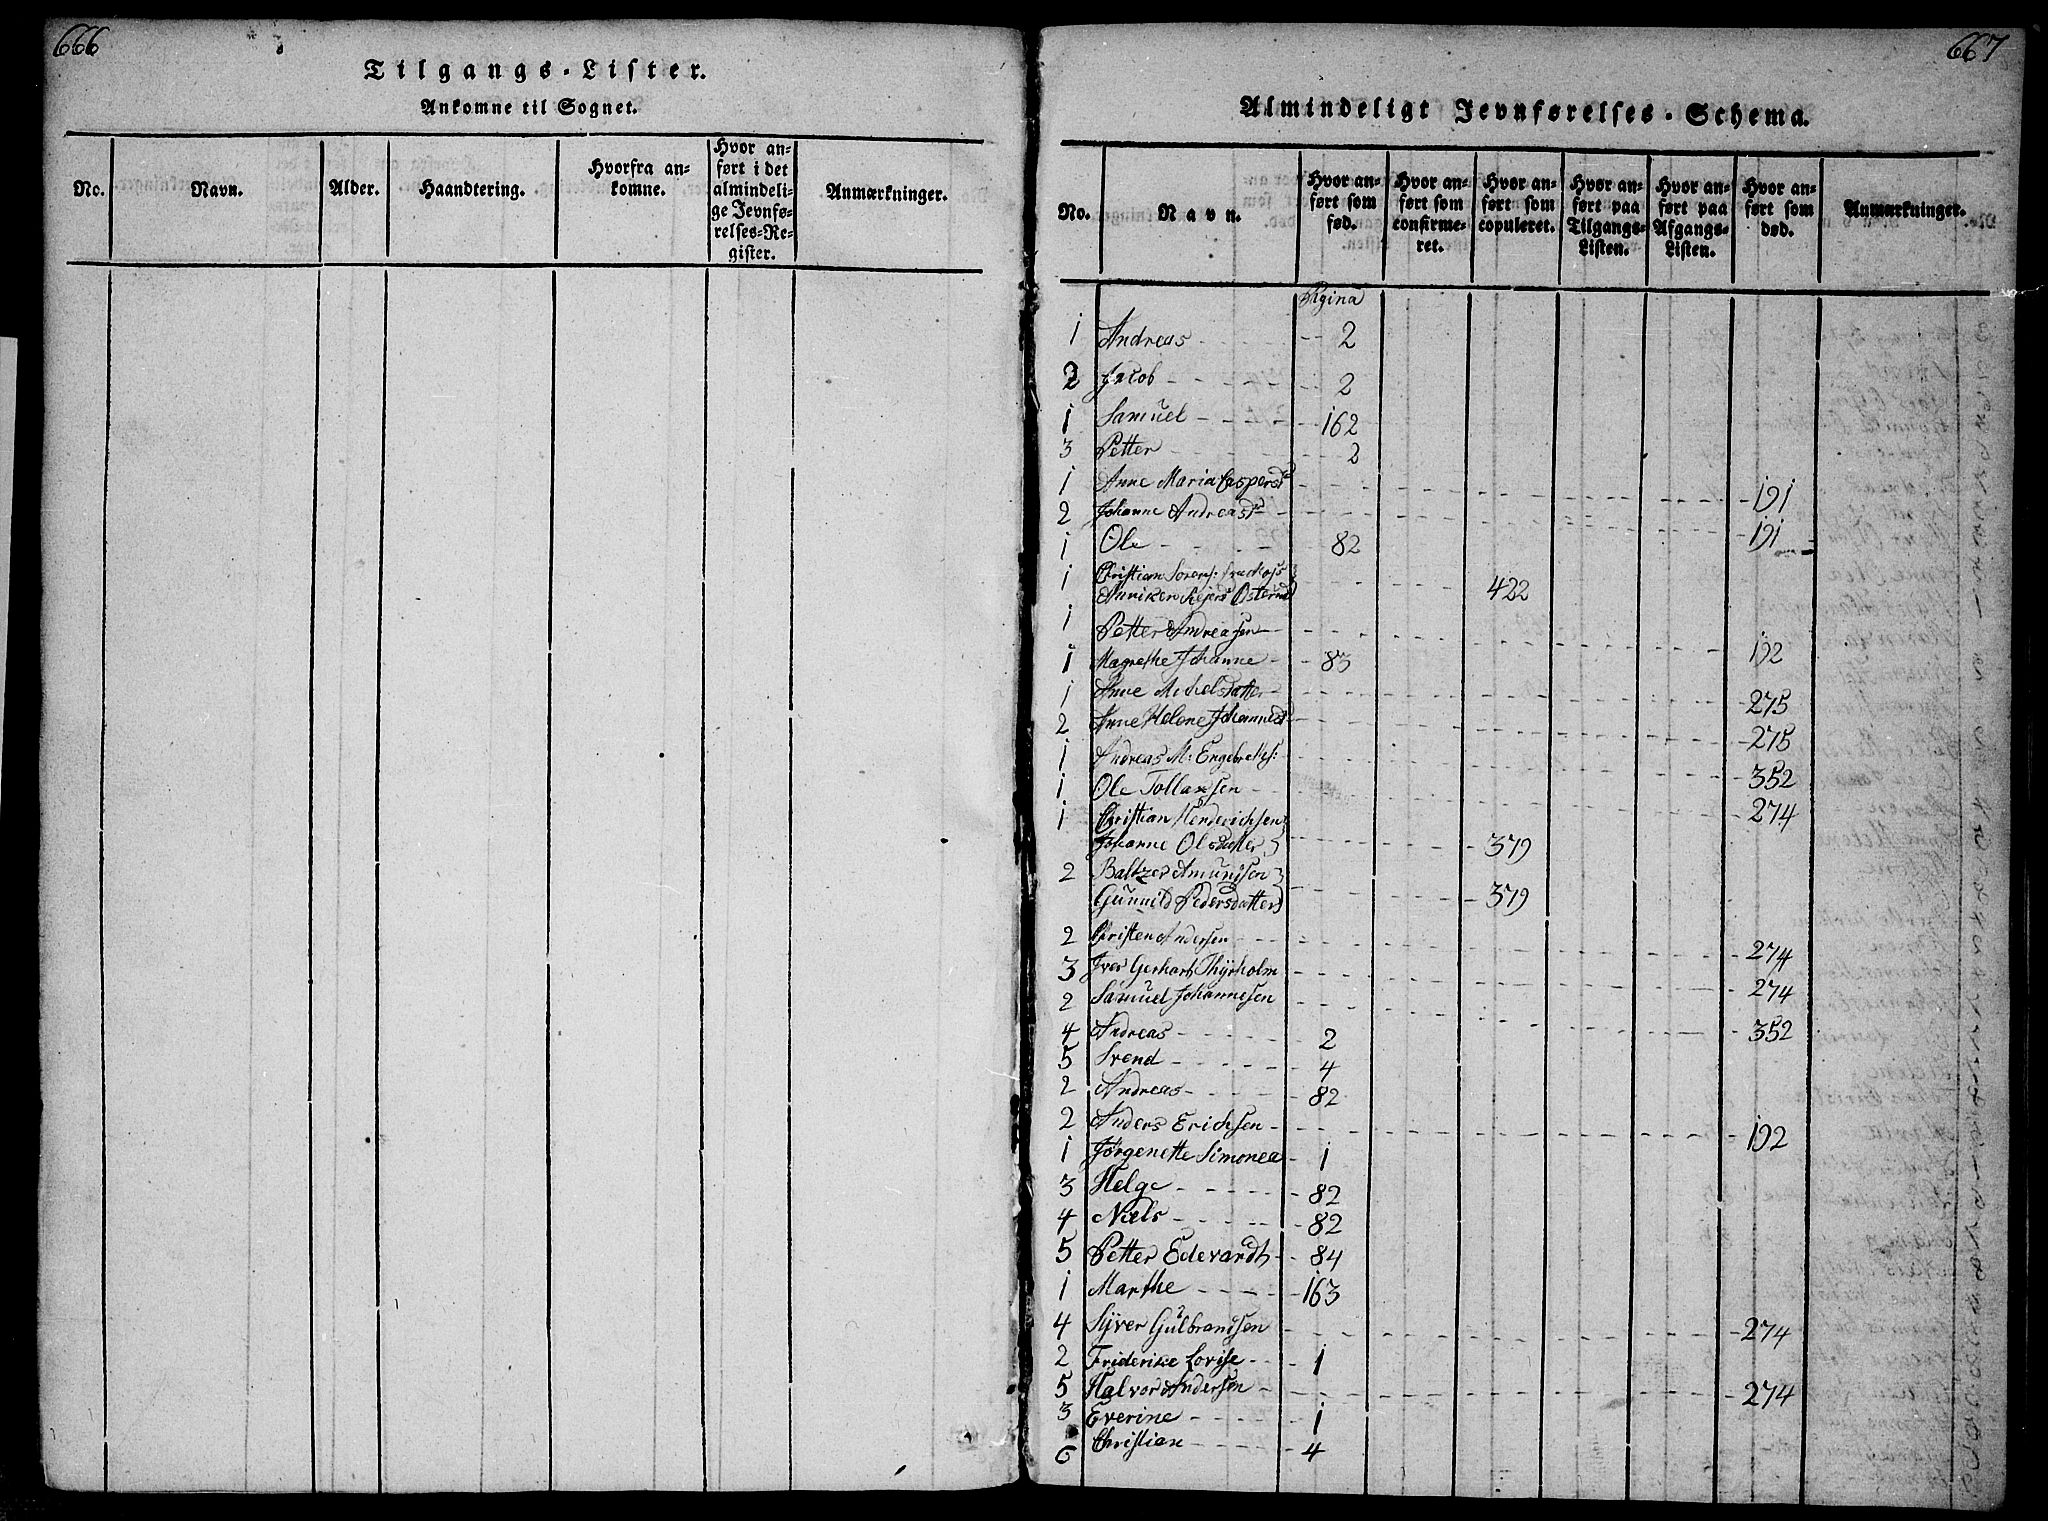 666
Tilgangs-Lister.
Ankomne til Sognet.
No. Navn. Alder. Haandtering. Hvorfra ankomne. Hvor anført i det almindelige Jevnførelses-Register. Anmærkninger.
667
Almindeligt Jevnførelses-Schema.
No. Navn. Hvor anført som fød. Hvor anført som confirmeret. Hvor anført som copuleret. Hvor anført paa Tilgangs-Listen. Hvor anført paa Afgangs-Listen. Hvor anført som død. Anmærkninger.
Pagina
1 Andreas 2
2 Jacob 2
1 Samuel 162
3 Petter 2
1 Anne Maria Caspersd 191
2 Johanne Andreasd 191
1 Ole 82
1 Christian Sørens:
Anniken 422
1 Petter Andreasen 192
1 Magrethe Johanne 83
1 Anne Michelsdatter 275
2 Anne Helene Johannesd 275
1 Andreas M: Engebrets: 352
1 Ole Tollaksen 274
1 Christian Henderichsen
Johanne Olsdatter 379
2 Baltzer Amundsen
Gunnild Pedersdatter 379
2 Christen Andersen 274
3 Iver Gerhart Thyrholm 274
2 Samuel Johannesen 352
4 Andreas 2
5 Svend 4
2 Andreas 82
2 Anders Erichsen 192
1 Jørgenette Simonea 1
3 Helge 82
4 Niels 82
5 Petter Edevardt 84
1 Marthe 163
4 Syver Gulbrandsen 274
2 Friderike Lovise 1
5 Halvor Andersen 274
3 Everine 1
6 Christian 4